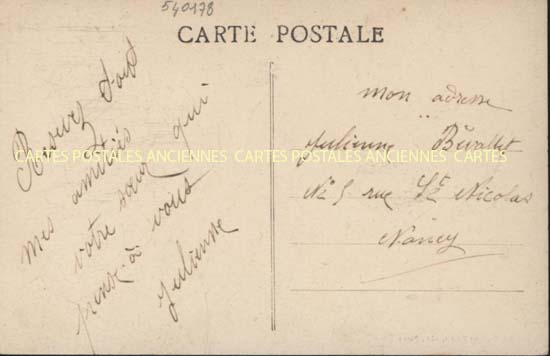 540178
CARTE POSTALE
Recevez tout
mes amitiés
votre sœur qui
pense à vous
Julienne
mon adresse
Julienne
N° 5 rue St Nicolas
Nancy
CARTES POSTALES ANCIENNES CARTES POSTALES ANCIENNES CARTES POSTALES ANCIENNES